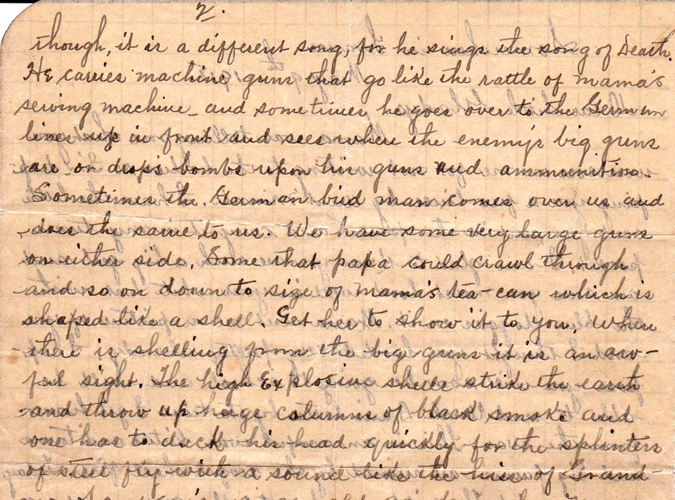 2.
though, it is a different song, for he sings the song of Death.
He carries machine guns that go like the rattle of mama's
sewing machine and sometimes he goes over to the German
lines up in front and sees where the enemy's big guns
are or drops bombs upon his guns and ammunition.
Sometimes the German bird man comes over us and
does the same to us. We have some very large guns
on either side. Some that papa could crawl through
and so on down to size of mama's tea-can which is
shaped like a shell. Get her to show it to you. When
there is shelling from the big guns it is an aw-
ful sight. The high Explosive shells strike the earth
and throw up huge columns of black smoke and
one has to duck his head quickly for the splinters
of steel fly with a sound like the hiss of Grand-